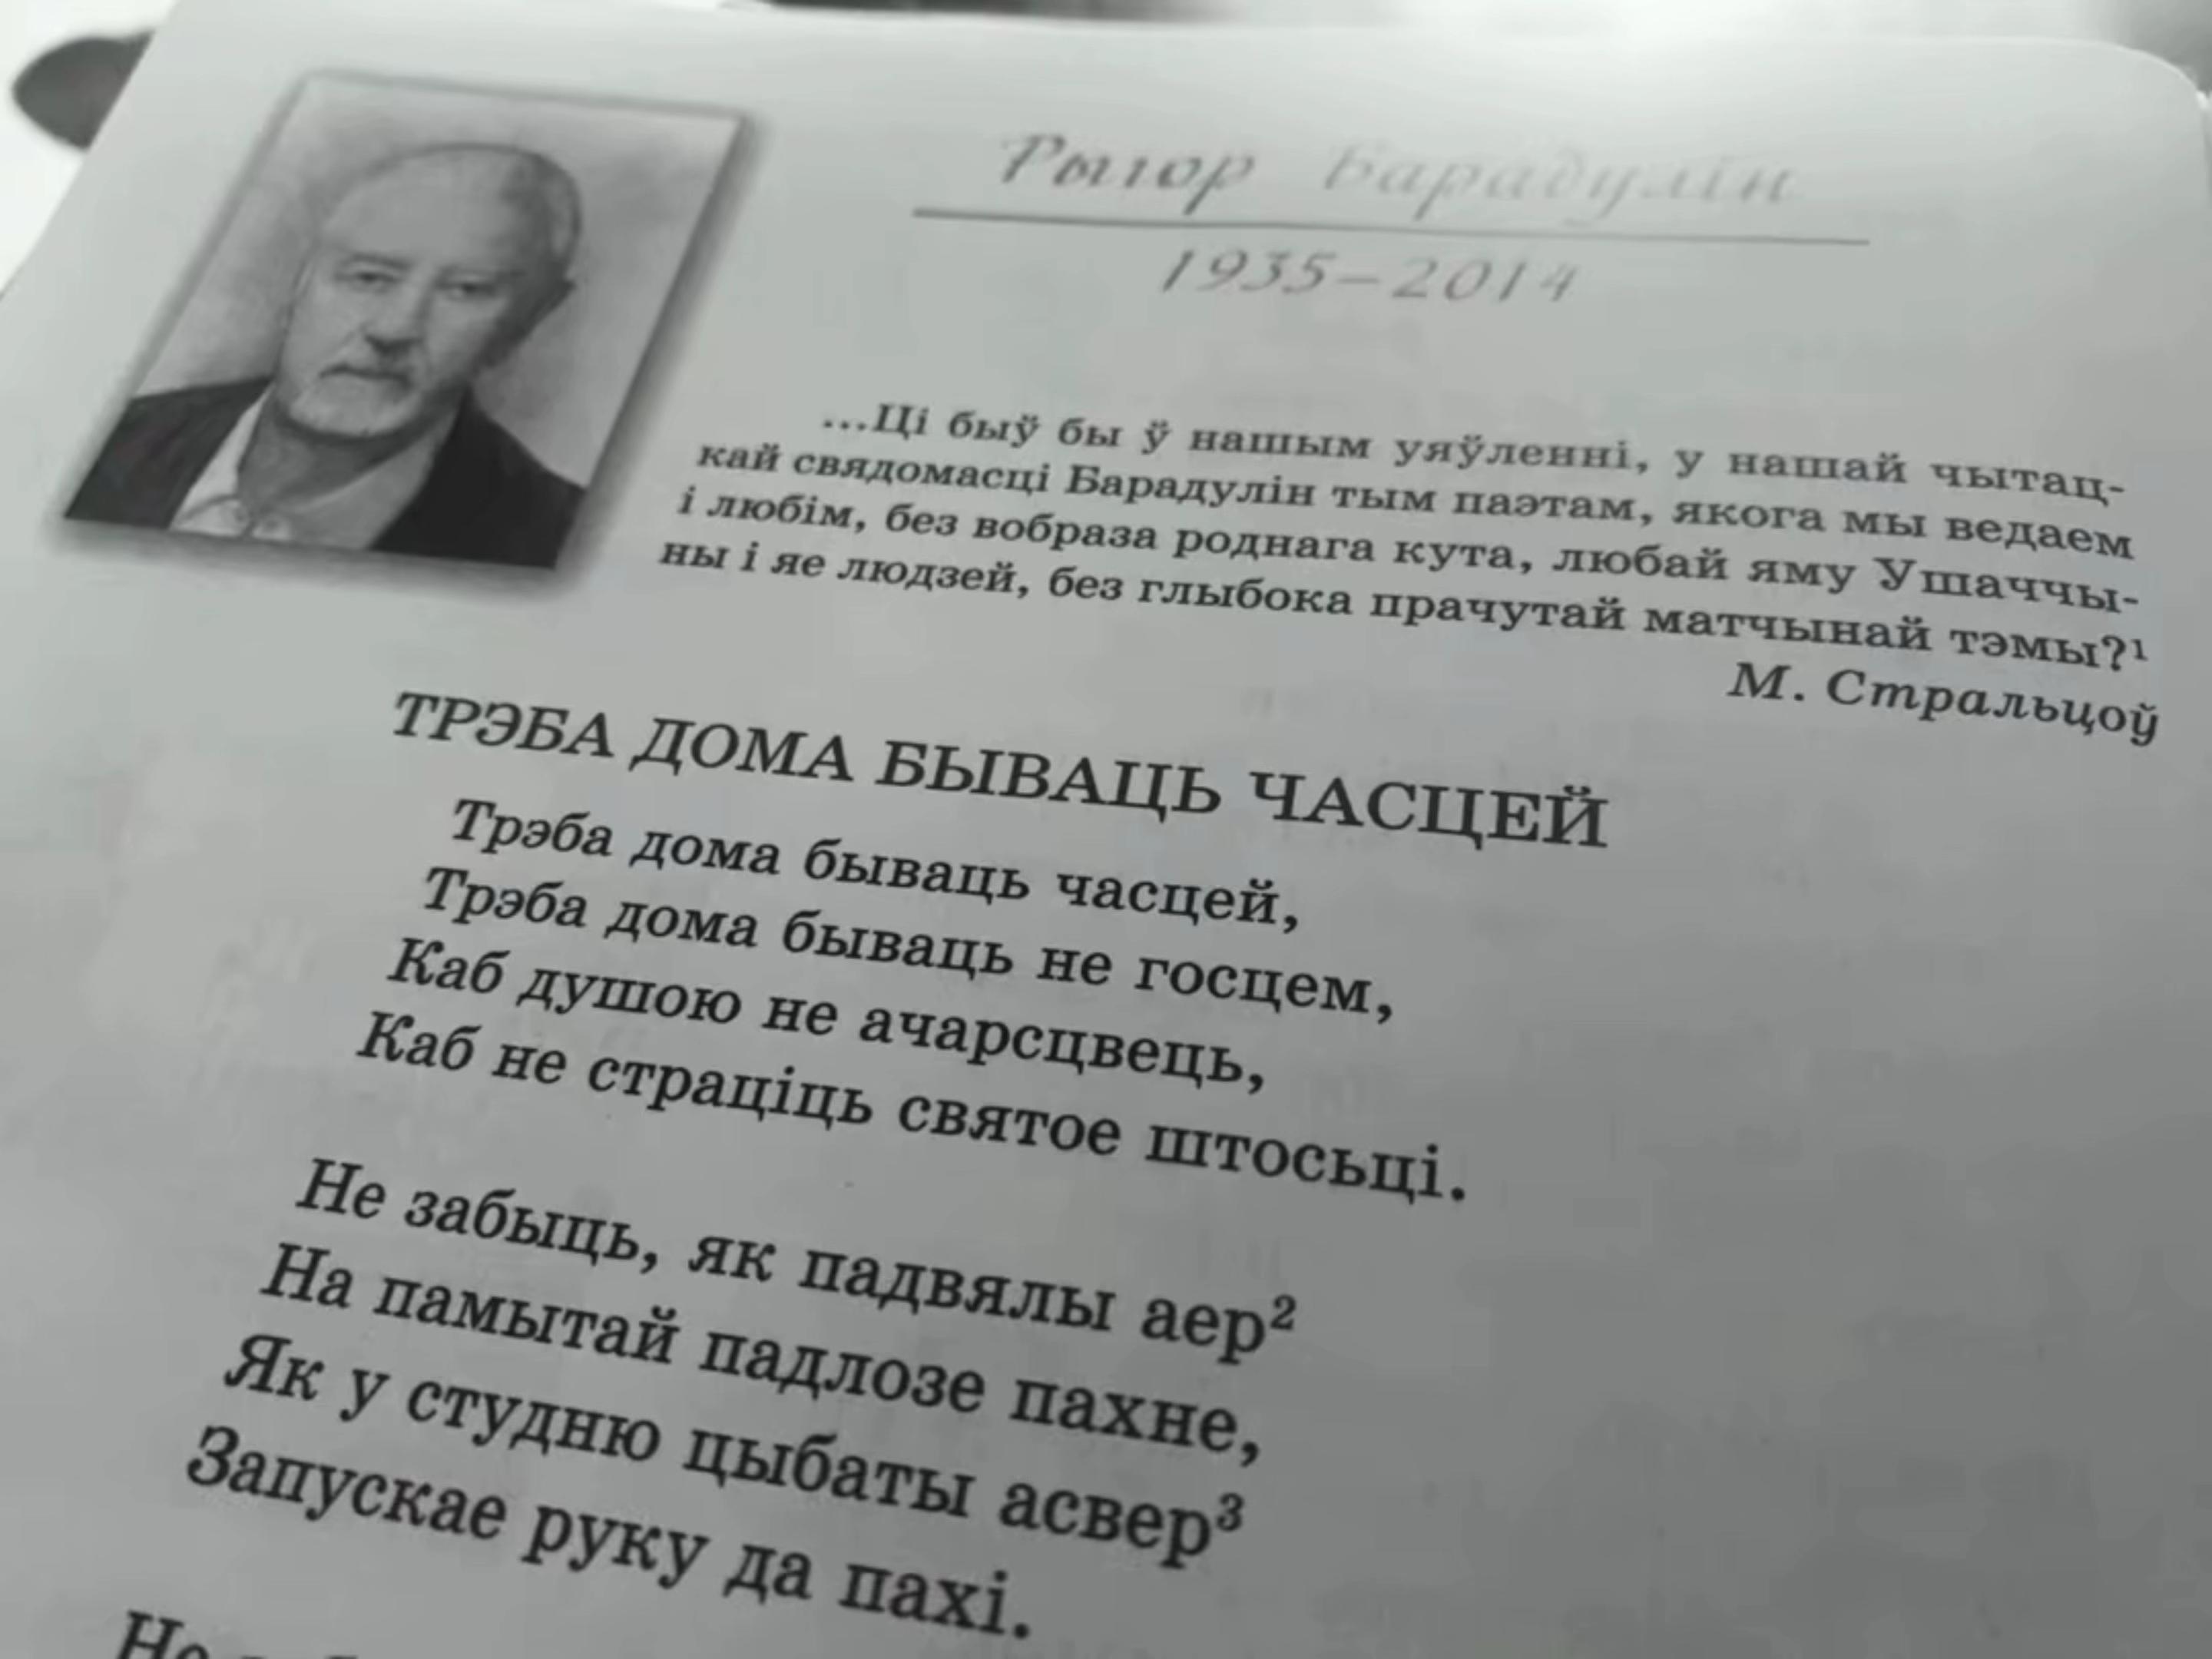 Рыгор Барадулін
1935–2014
...Ці быў бы ў нашым уяўленні, у нашай чытац-
кай свядомасці Барадулін тым паэтам, якога мы ведаем
і любім, без вобраза роднага кута, любай яму Ушаччы-
ны і яе людзей, без глыбока прачутай матчынай тэмы?¹
М. Стральцоў
ТРЭБА ДОМА БЫВАЦЬ ЧАСЦЕЙ
Трэба дома бываць часцей,
Трэба дома бываць не госцем,
Каб душою не ачарсцвець,
Каб не страціць святое штосьці.
Не забыць, як падвялы аер²
На памытай падлозе пахне,
Як у студню цыбаты асвер³
Запускае руку да пахі.